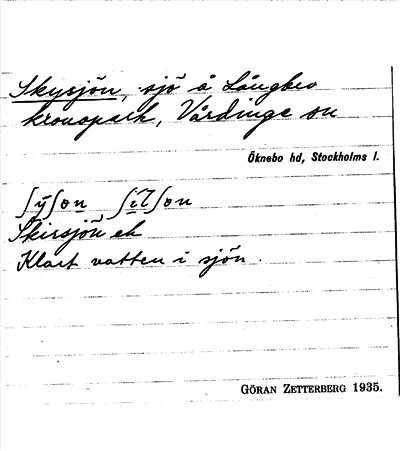 Skysjön, sjö å Långbro
kronopark, Vårdinge sn
Öknebo hd, Stockholms l.
Skirsjön ek
Klart vatten i sjön.
GÖRAN ZETTERBERG 1935.